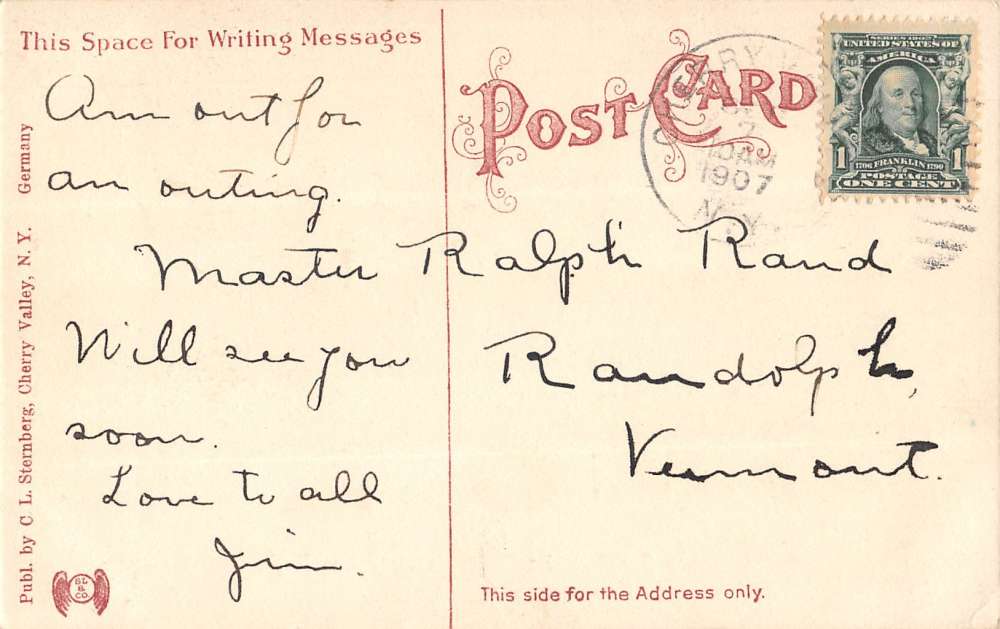 This Space For Writing Messages
Am out for
an outing.
Will see you
soon.
Love to all
Jim.
POST CARD
Master Ralph Rand
Randolph,
Vermont.
10AM
1907
N.Y.
SERIES 1902
UNITED STATES OF
AMERICA
1 1706 FRANKLIN 1790 1
POSTAGE
ONE CENT
This side for the Address only.
Publ. by C. L. Sternberg, Cherry Valley, N. Y. Germany